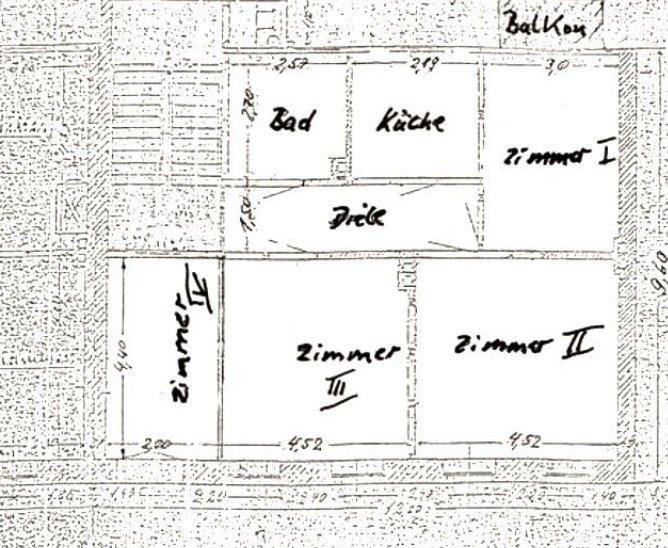 Balkon
2,57
2,19
3,0
2,70
Bad
Küche
Zimmer I
Diele
1,50
Zimmer IV
Zimmer
III
Zimmer II
4,40
9,60
4,52
4,52